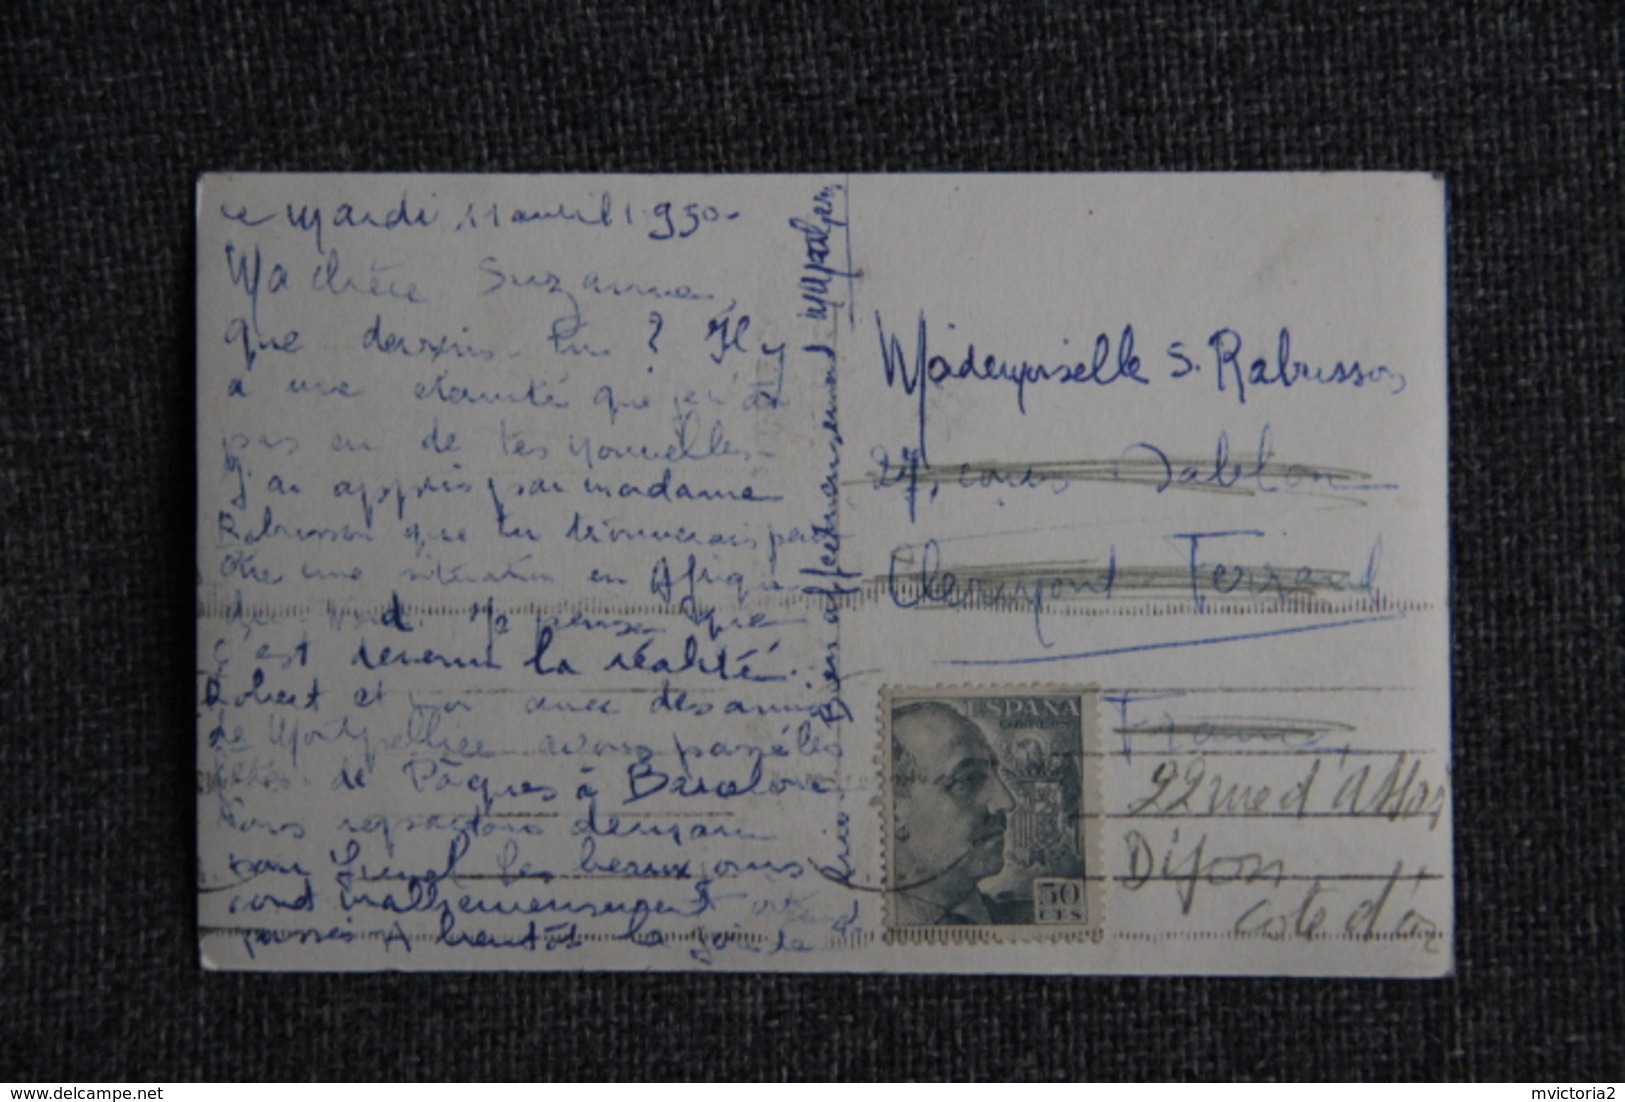 ce Mardi 11 avril 1950
Ma chère Suzanne,
que deviens-tu ? Il y
a une éternité que je n'ai
pas eu de tes nouvelles.
J'ai appris par madame
Rabusson que tu trouverais peut
être une situation en Afrique
du Nord. Je pense que
c'est devenu la réalité.
Robert et moi avec des amis
de Montpellier avons passé les
fêtes de Pâques à Barcelone
Nous repartons demain
les beaux jours
sont malheureusement
passés A bientôt la joie de
Bien affectueusement
Mademoiselle S. Rabusson
27, cours Sablon
Clermont-Ferrand
France
22 rue d'Assas
Dijon
Cote d'or
ESPAÑA
CORREOS
50
CTS
delcampe.net
mvictoria2